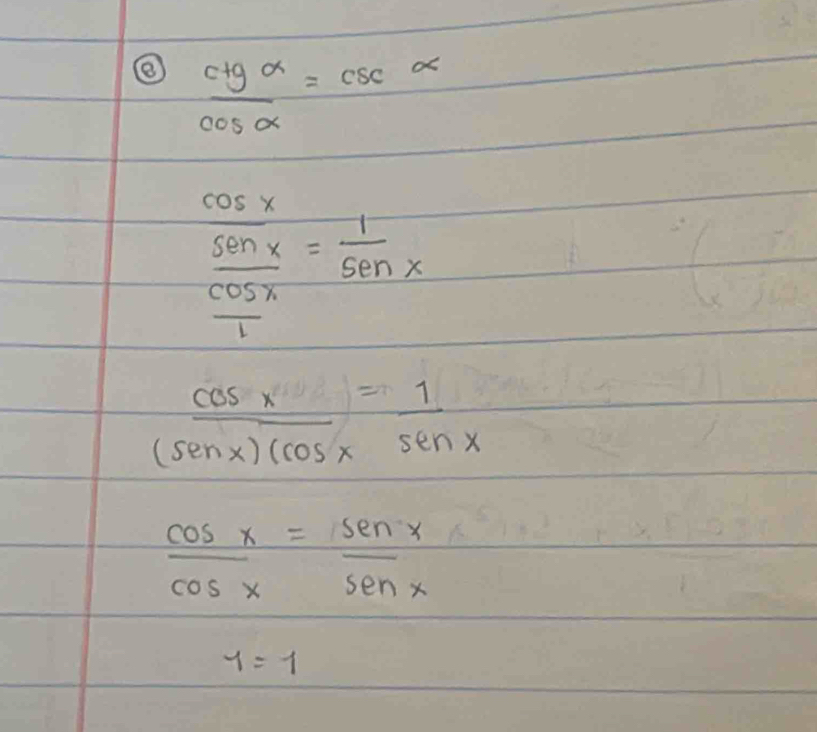 ⓔ ctg α / cos α = csc α
cos x / sen x / cos x / 1 = 1 / sen x
cos x / (sen x) (cos x = 1 / sen x
cos x / cos x = sen x / sen x
1 = 1